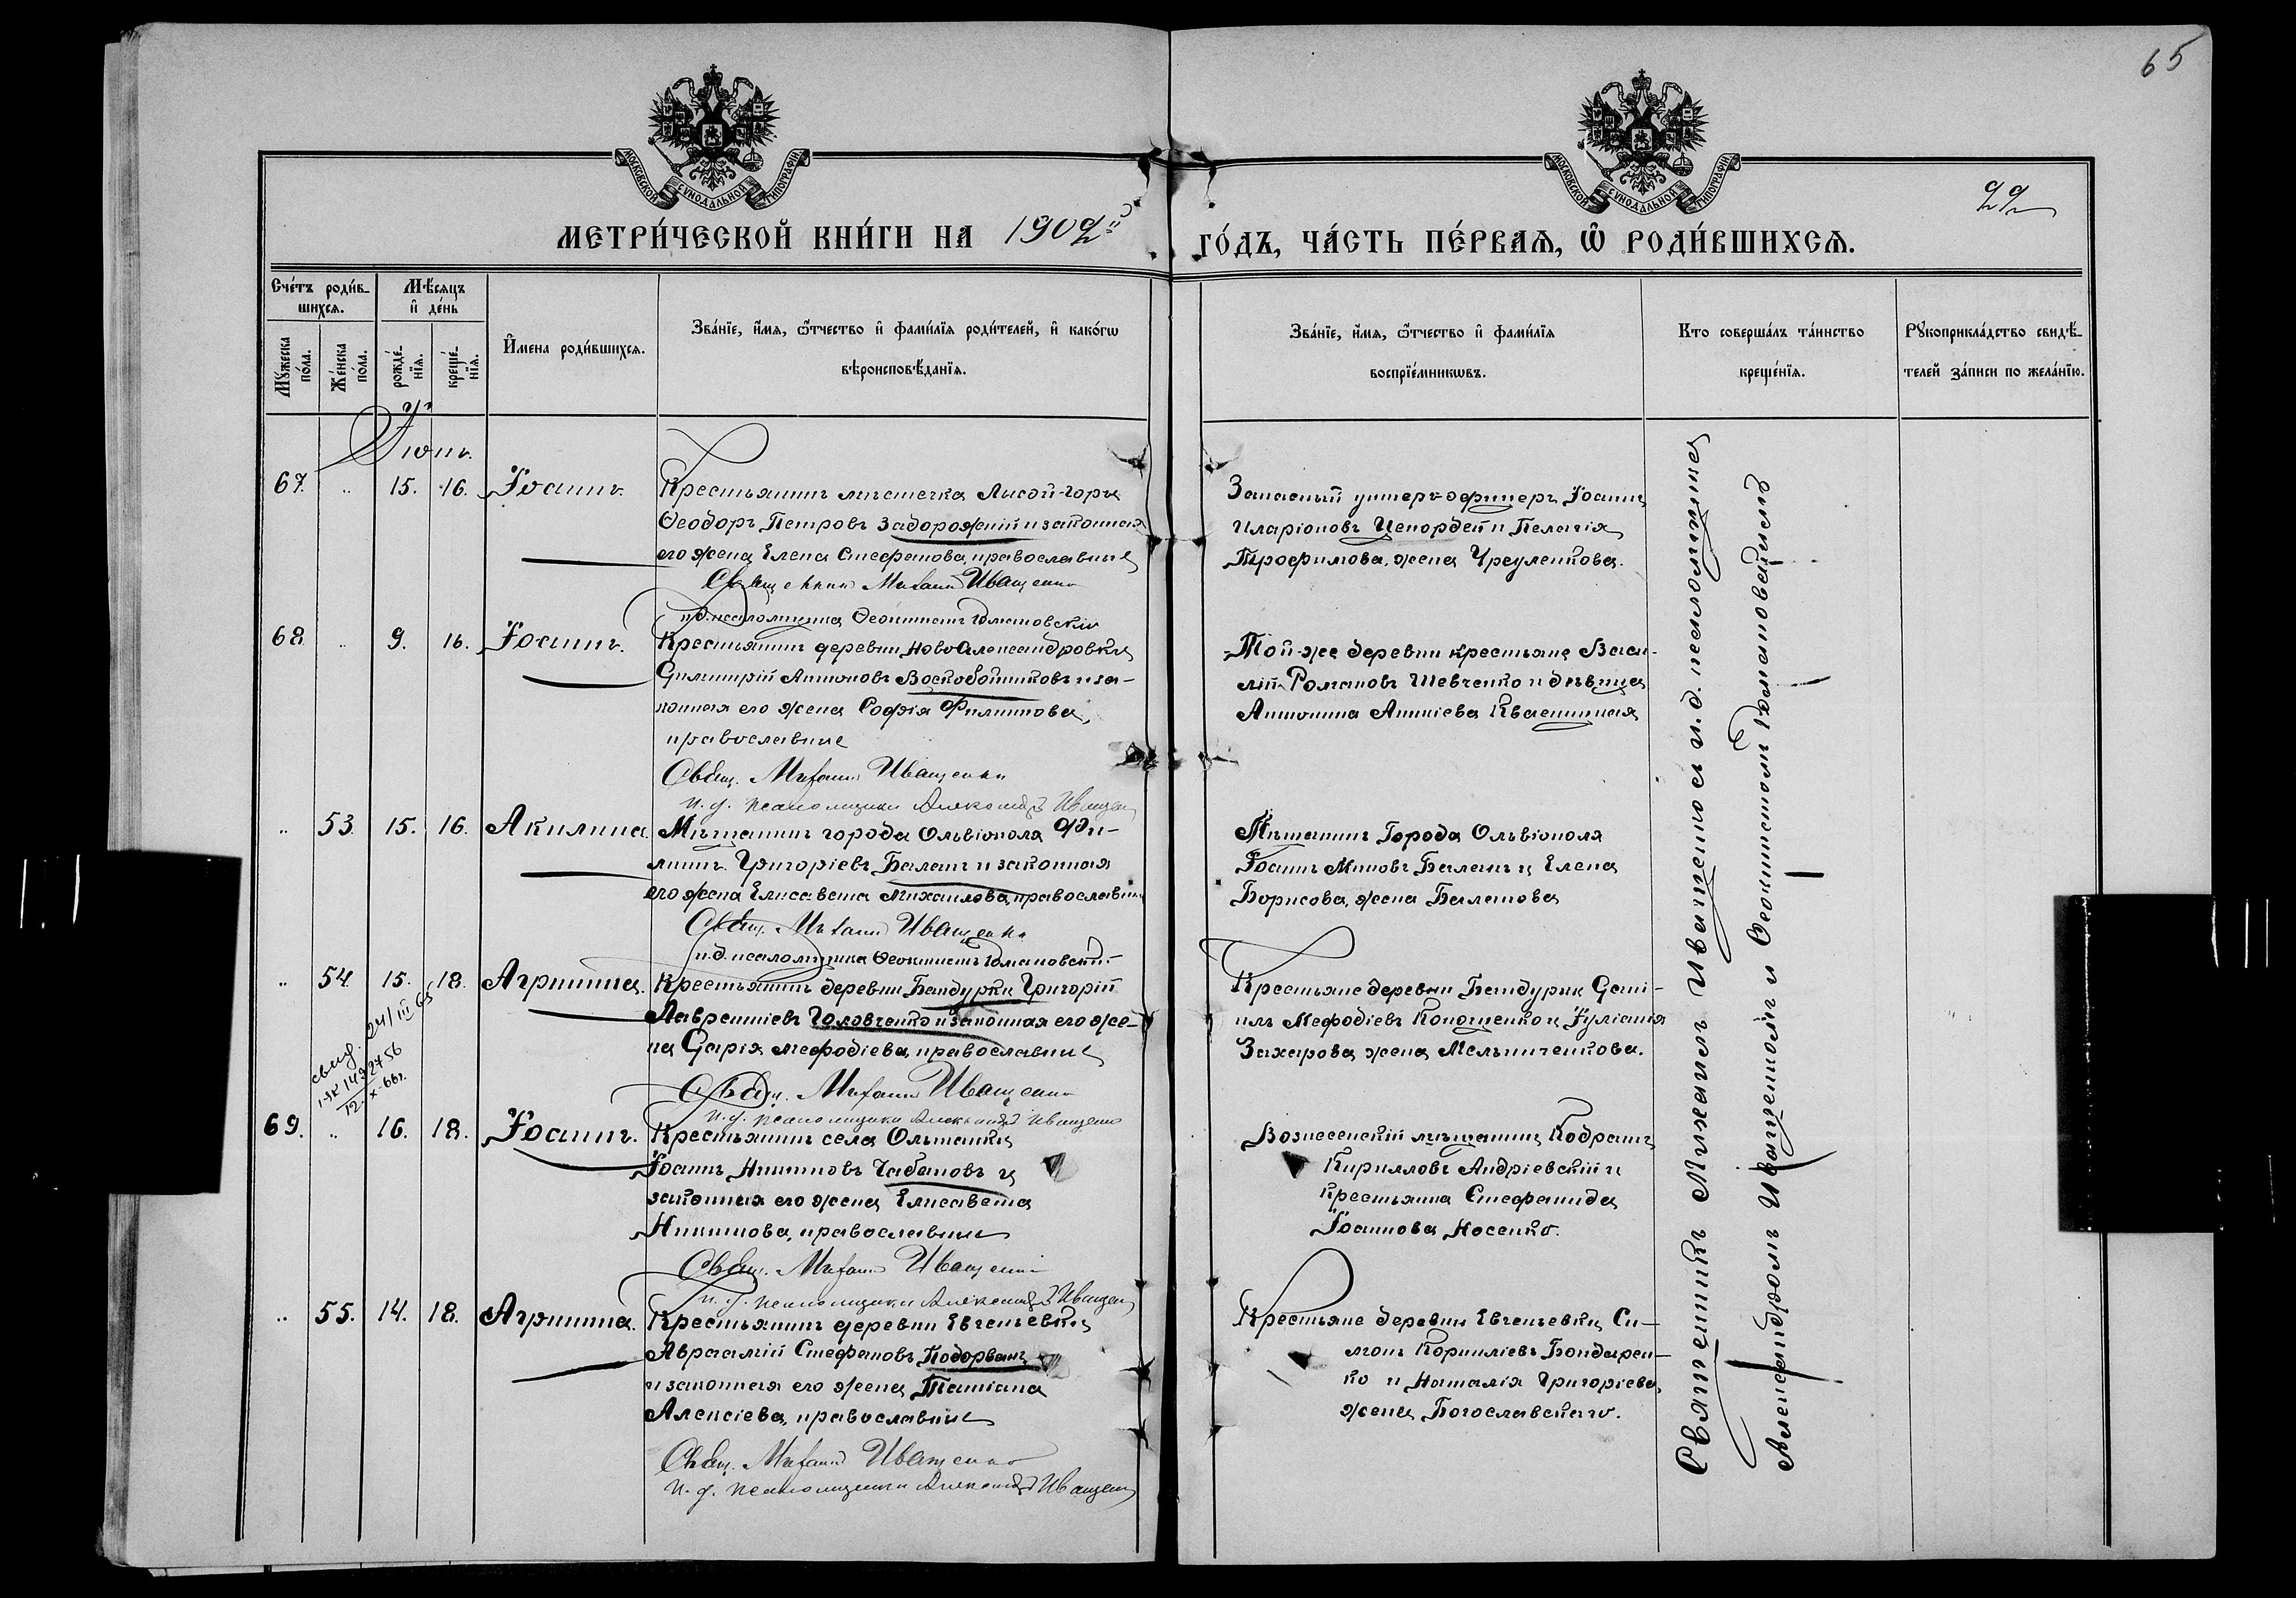 65
МОСКОВСКОЙ СѴНОДАЛЬНОЙ ТИПОГРАФІИ
МОСКОВСКОЙ СѴНОДАЛЬНОЙ ТИПОГРАФІИ
22
МЕТРИ́ЧЕСКОЙ КНИ́ГИ НА 1902й
ГО́ДЪ, ЧА́СТЬ ПЕ́РВАѦ, Ѡ РОДИ́ВШИХСѦ.
Сче́тъ роди́в-
шихсѧ.
Мѣ́сѧцъ
и҆ де́нь
Мꙋ́жеска по́ла.
Же́нска по́ла.
рожде́-
нїѧ.
креще́-
нїѧ.
И҆мена роди́вшихсѧ.
Зва́нїе, и҆́мѧ, ѻ҆́тчество и҆ фами́лїѧ роди́телей, и҆ како́гѡ
вѣроисповѣ́данїѧ.
Зва́нїе, и҆́мѧ, ѻ҆́тчество и҆ фами́лїѧ
воспрїе́мникѡвъ.
Кто соверша́лъ та́инство
креще́нїѧ.
Рꙋкоприкла́дство свидѣ́-
телей за́писи по жела́нїю.
Іюнь.
67. " 15. 16. Іоаннъ.
Крестьянинъ мѣстечка Лысой-горы
Ѳеодоръ Петровъ Задорожній и законная
его жена Елена Стефанова, православные
Священник Михаил Иващенко
и.д. псаломщика Ѳеоктистъ Романовскій
Запасный унтеръ-офицеръ Іоаннъ
Иларіоновъ Ценордей и Пелагія
Трофимова, жена Чреуленкова.
68. " 9. 16. Іоаннъ.
Крестьянинъ деревни НовоАлександровки
Димитрій Антоновъ Воскобойниковъ и за-
конная его жена Софія Филиппова,
православные
Свящ. Михаил Иващенко
и. д. псаломщика Александръ Иващен
Той-же деревни крестьяне Васи-
лій Романовъ Шевченко и дѣвица
Антонина Антніева Квасницкая
" 53. 15. 16. Акилина.
Мѣщанинъ города Ольвіополя Фи-
липпъ Григоріевъ Баланъ и законная
его жена Елисавета Михаилова, православны
Свящ. Михаил Иващенко
и.д. псаломщика Ѳеоктистъ Романовскій
Мѣщанинъ Города Ольвіополя
Іоаннъ Миновъ Баланъ и Елена
Борисова, жена Баланова
" 54. 15. 18. Агрипина.
Крестьянинъ деревни Бандурки Григорій
Лаврентіевъ Головченко и законная его же-
на Дарія Мефодіева, православные
Свящ. Михаил Иващенко
и. д. псаломщика Александръ Иващенко
Крестьяне деревни Бандурки Дані-
илъ Мефодіевъ Кононенко и Іуліанія
Захарова жена Мельниченкова.
свид. 24/III 65
69. " 16. 18. Іоаннъ.
Крестьянинъ села Ольшанки
Іоаннъ Никитовъ Чабановъ и
законная его жена Елисавета
Никитова, православные
Свящ. Михаил Иващенко
и. д. псаломщика Александръ Иващен
Вознесенскій мѣщанинъ Кодратъ
Кирилловъ Андріевскій и
Крестьянка Стефанида
Іоаннова Носенко.
" 55. 14. 18. Агрипина.
Крестьянинъ деревни Евгеньевки
Авраамій Стефановъ Подорванъ
и законная его жена Татіана
Алексіева, православные
Свящ. Михаил Иващенко
и. д. псаломщика Александръ Иващен
Крестьяне деревни Евгеньевки Си-
монъ Корниліевъ Бондарен-
ко и Наталія Григоріева,
жена Богославскаго.
Священникъ Михаилъ Иващенко съ и.д. псаломщика
Александромъ Иващенкомъ и Ѳеоктистомъ Романовскимъ